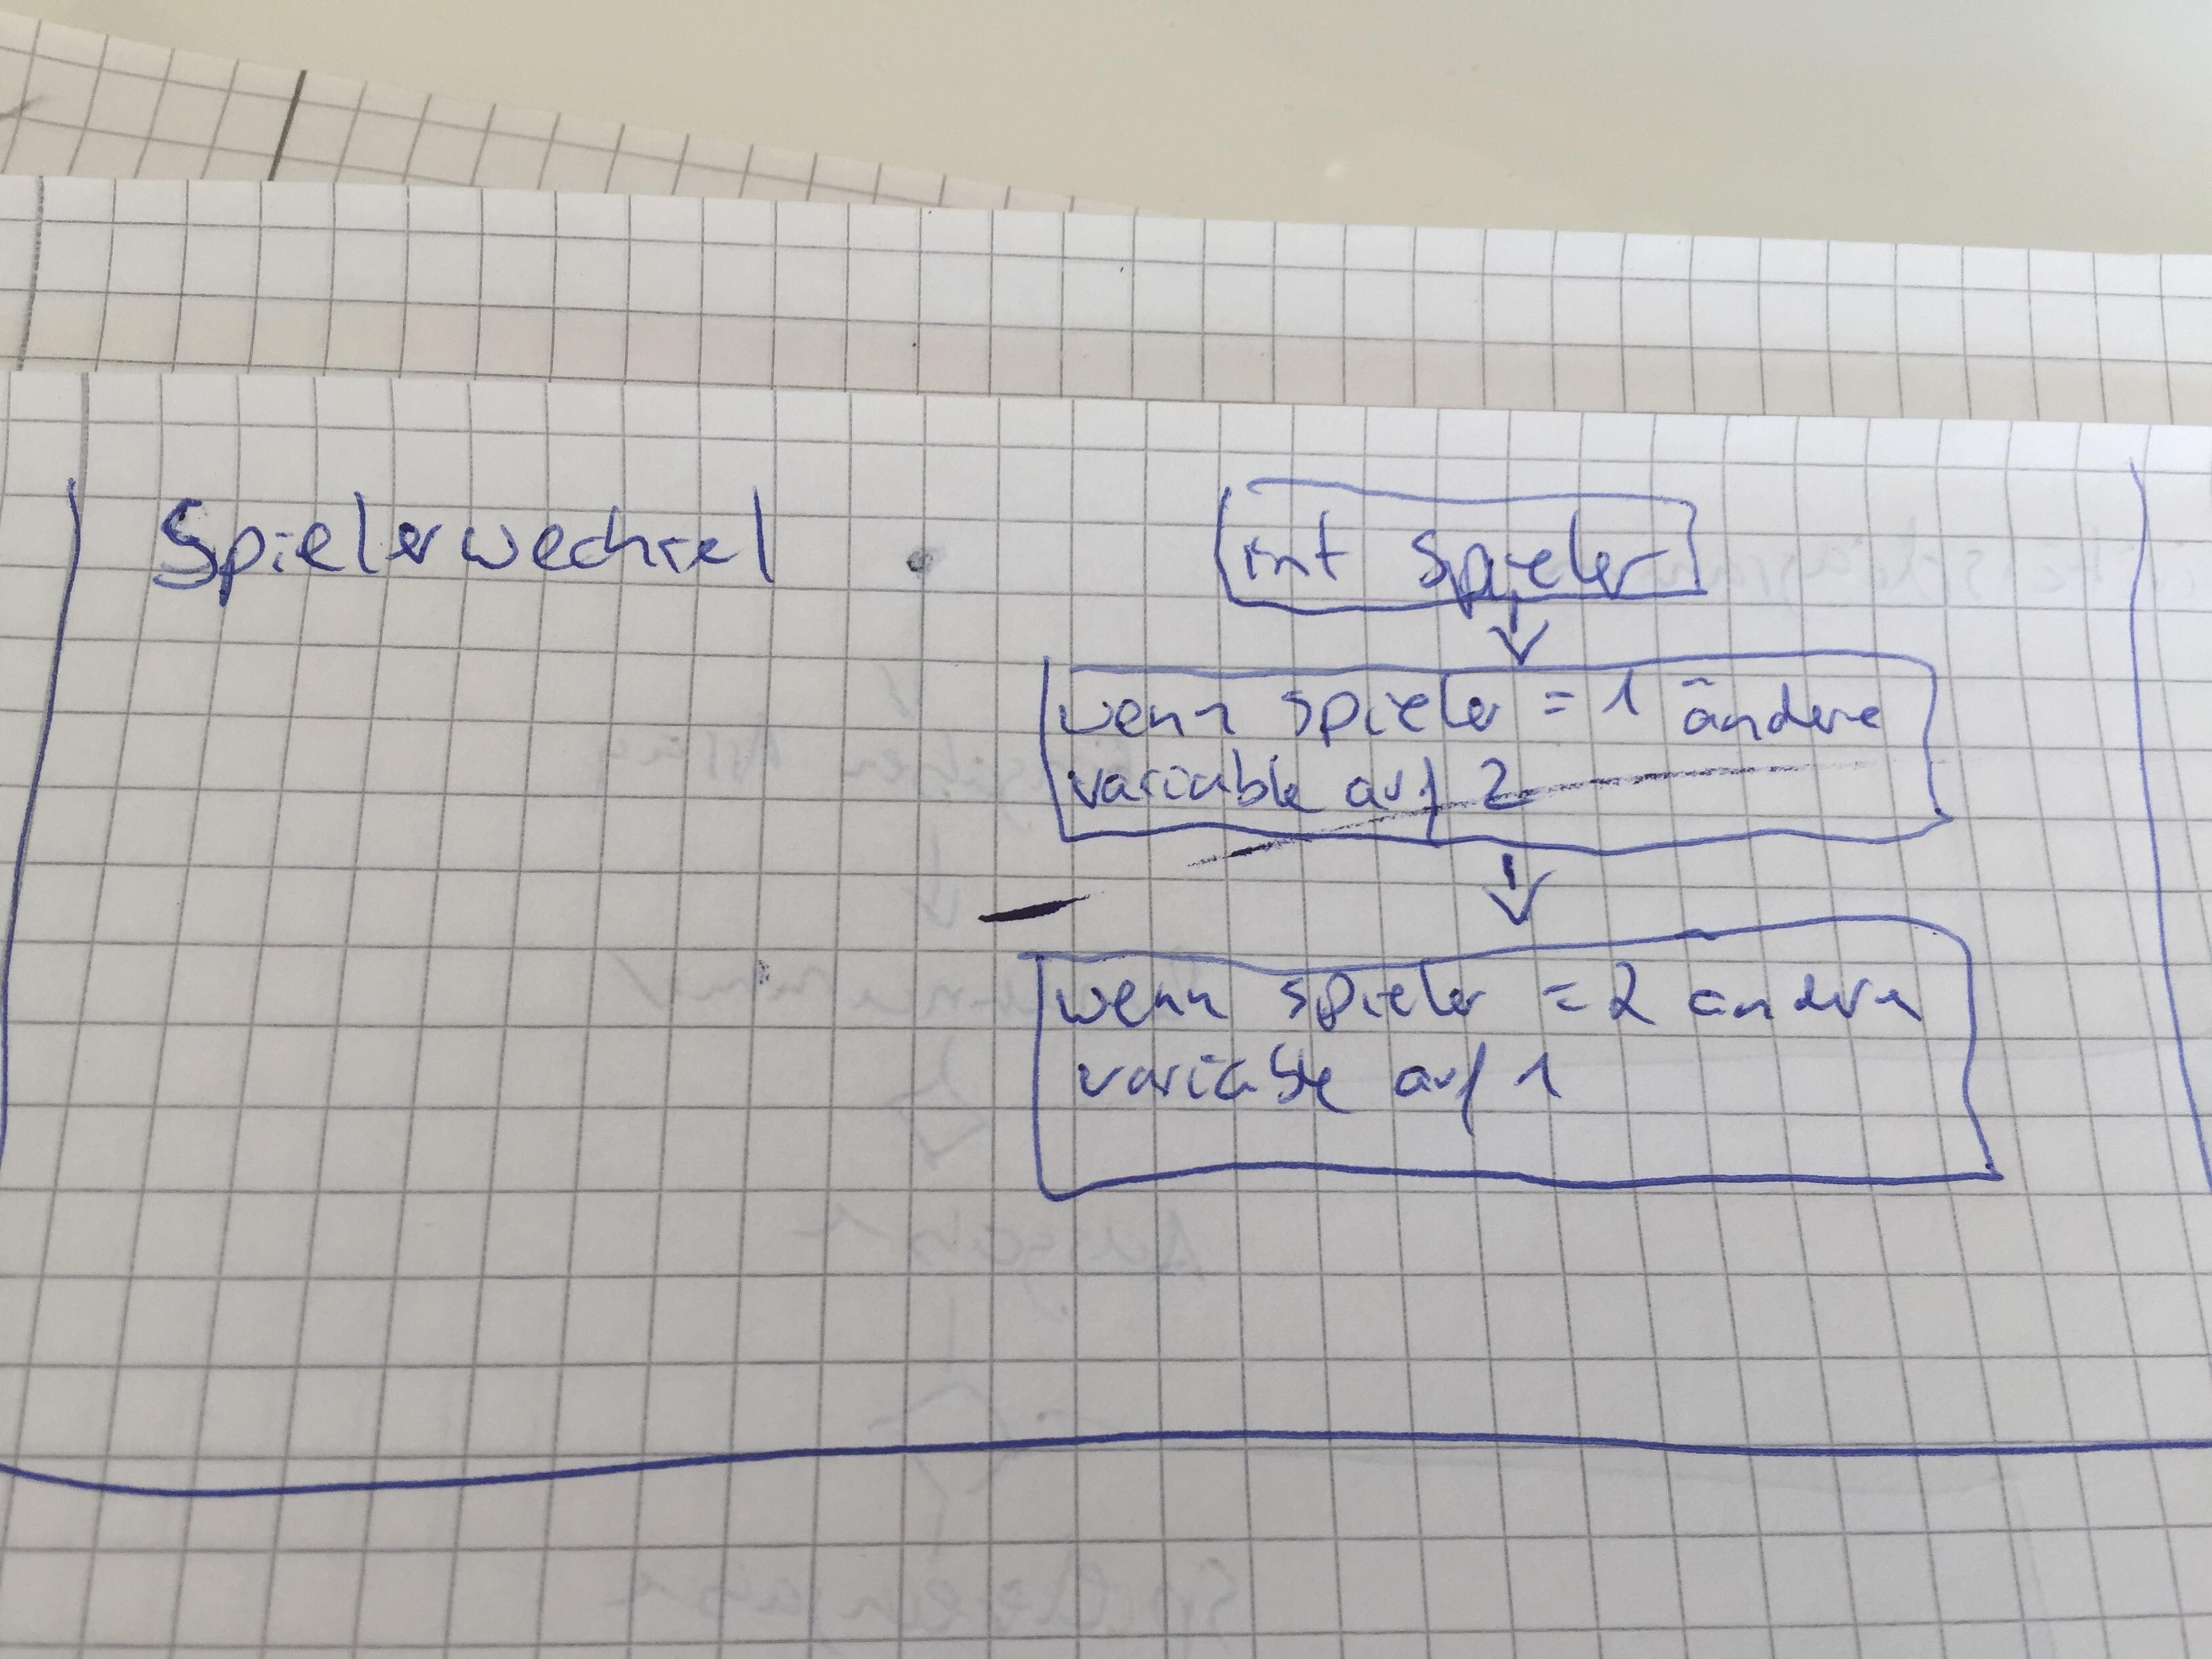 Spielerwechsel
int Spieler
wenn spieler = 1 ändere
variable auf 2
wenn spieler = 2 andere
variable auf 1